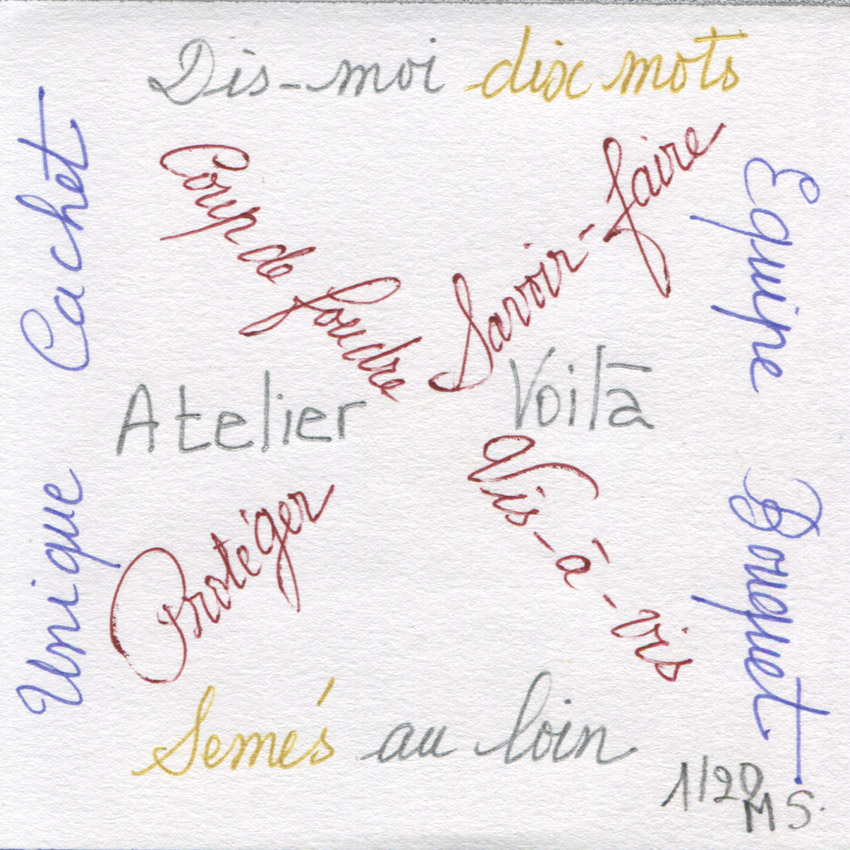 Dis-moi dix mots
Cachet
Coup de foudre
Savoir-faire
Equipe
Atelier
Voilà
Unique
Protéger
Vis-à-vis
Bouquet
Semés au loin
1/20
MS.